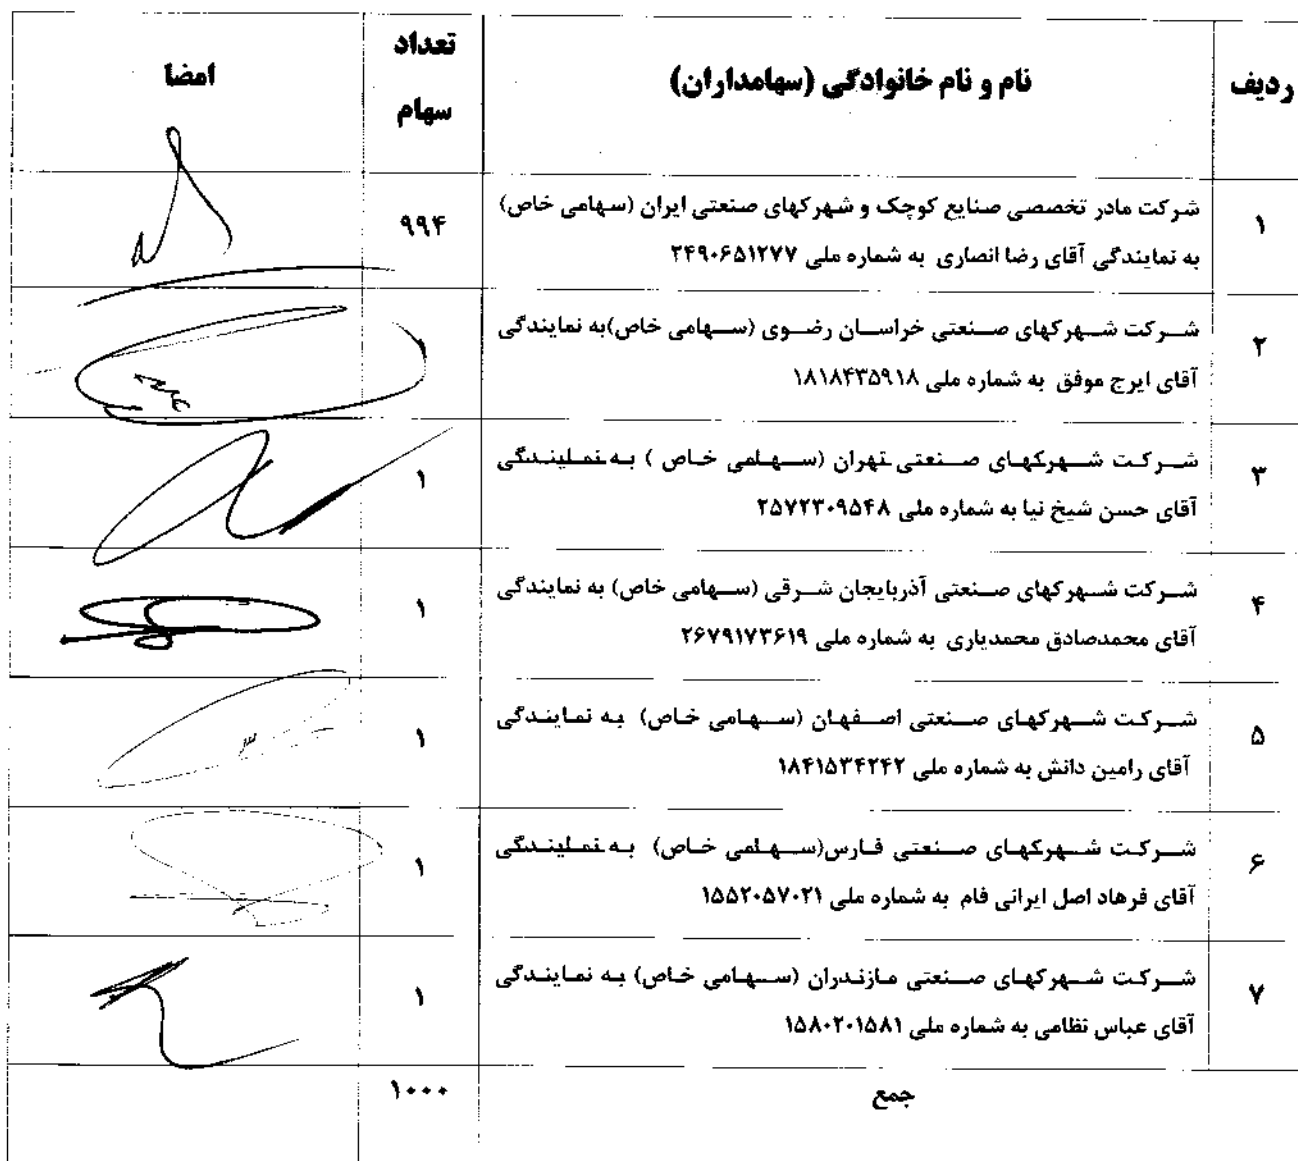 ردیف نام و نام خانوادگی (سهامداران) تعداد سهام امضا
۱ شرکت مادر تخصصی صنایع کوچک و شهرکهای صنعتی ایران (سهامی خاص) ۹۹۴
به نمایندگی آقای رضا انصاری به شماره ملی ۲۴۹۰۶۵۱۲۷۷
۲ شرکت شهرکهای صنعتی خراسان رضوی (سهامی خاص)به نمایندگی ۱
آقای ایرج موفق به شماره ملی ۱۸۱۸۴۳۵۹۱۸
۳ شرکت شهرکهای صنعتی تهران (سهامی خاص ) به نمایندگی ۱
آقای حسن شیخ نیا به شماره ملی ۲۵۷۲۳۰۹۵۴۸
۴ شرکت شهرکهای صنعتی آذربایجان شرقی (سهامی خاص) به نمایندگی ۱
آقای محمدصادق محمدیاری به شماره ملی ۲۶۷۹۱۷۳۶۱۹
۵ شرکت شهرکهای صنعتی اصفهان (سهامی خاص) به نمایندگی ۱
آقای رامین دانش به شماره ملی ۱۸۴۱۵۳۴۲۴۲
۶ شرکت شهرکهای صنعتی فارس(سهامی خاص) به نمایندگی ۱
آقای فرهاد اصل ایرانی فام به شماره ملی ۱۵۵۲۰۵۷۰۲۱
۷ شرکت شهرکهای صنعتی مازندران (سهامی خاص) به نمایندگی ۱
آقای عباس نظامی به شماره ملی ۱۵۸۰۲۰۱۵۸۱
جمع ۱۰۰۰